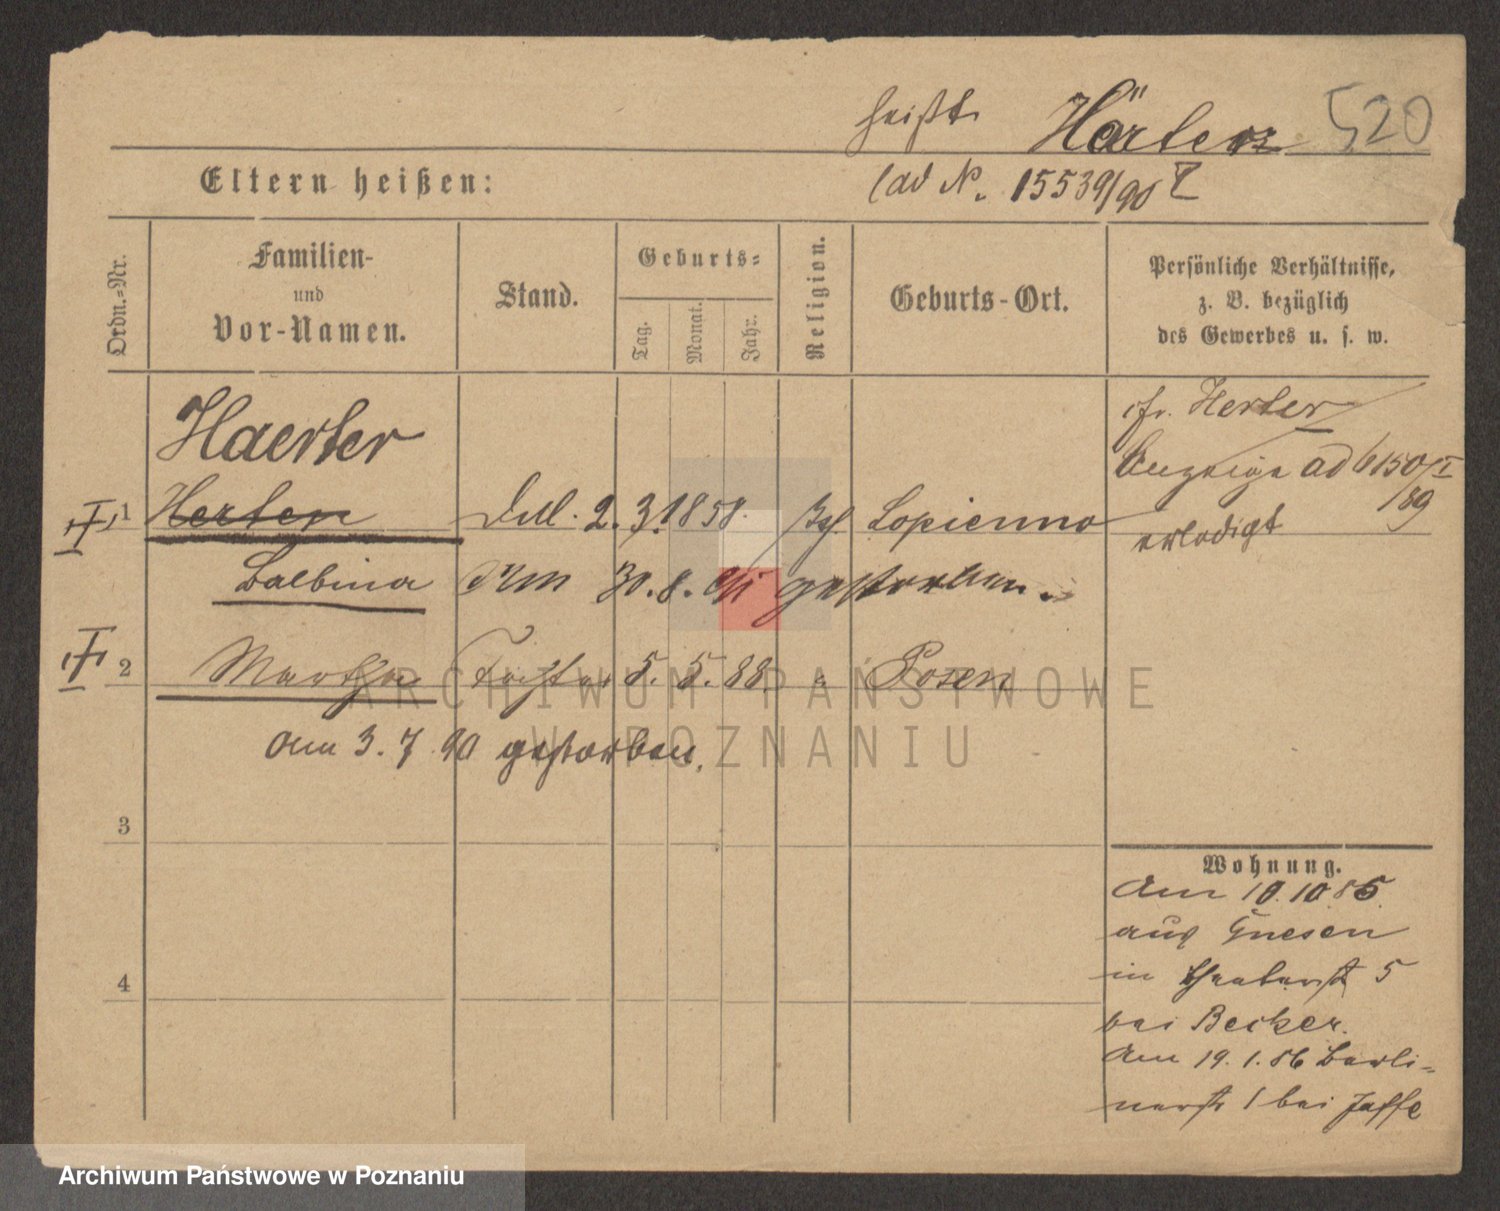 heißt Härter 520
(ad N. 15539/90
Eltern heißen:
Ordn.-Nr.
Familien-
und
Vor-Namen.
Stand.
Geburts-
Tag.
Monat.
Jahr.
Religion.
Geburts-Ort.
Persönliche Verhältnisse,
z. B. bezüglich
des Gewerbes u. s. w.
Haerter
cfr. Herter
Anzeige ad 6150/I
/89
erledigt
1 Herter led. 2. 3. 1858. Lopienno
Balbina Am 30. 8. gestorben.
2 Martha Tochter 5. 5. 88. " Posen
am 3. 7. 90 gestorben.
3
4
Wohnung.
Am 10.10.85.
aus Gnesen
in Theaterst 5
bei Becker.
Am 19.1.86 Berli-
nerst 1 bei Jaffe
ARCHIWUM PAŃSTWOWE
W POZNANIU
Archiwum Państwowe w Poznaniu